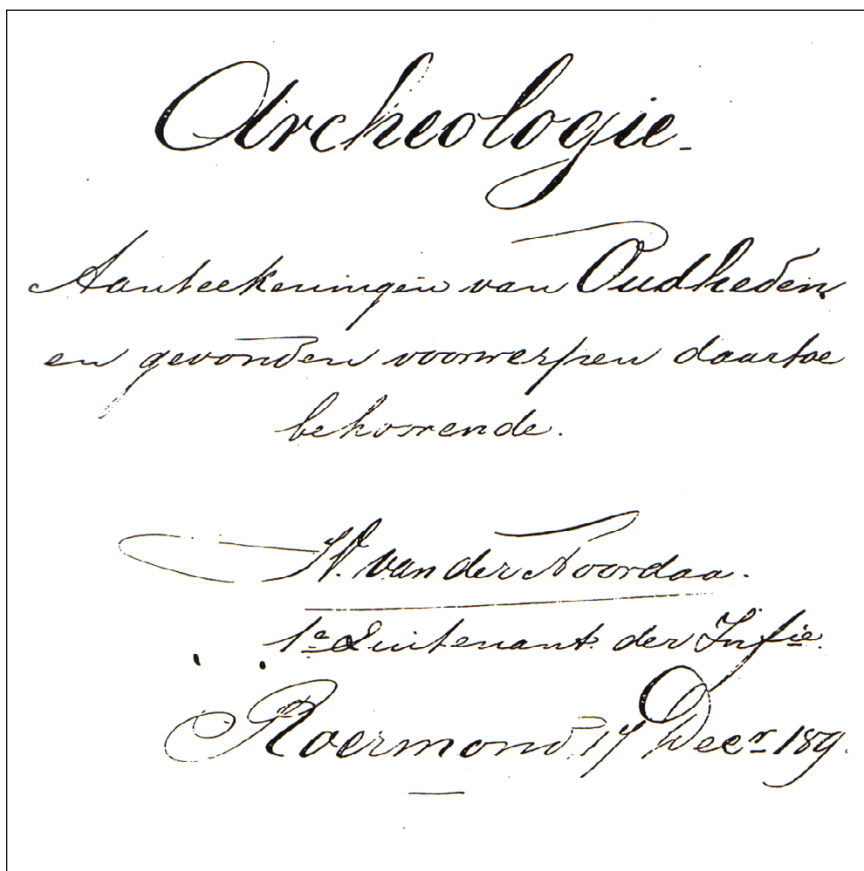 Archeologie.
Aanteekeningen van Oudheden
en gevonden voorwerpen daartoe
behoorende.
W. van der Noordaa.
1e Luitenant der Infie.
Roermond, 17 Decr 189